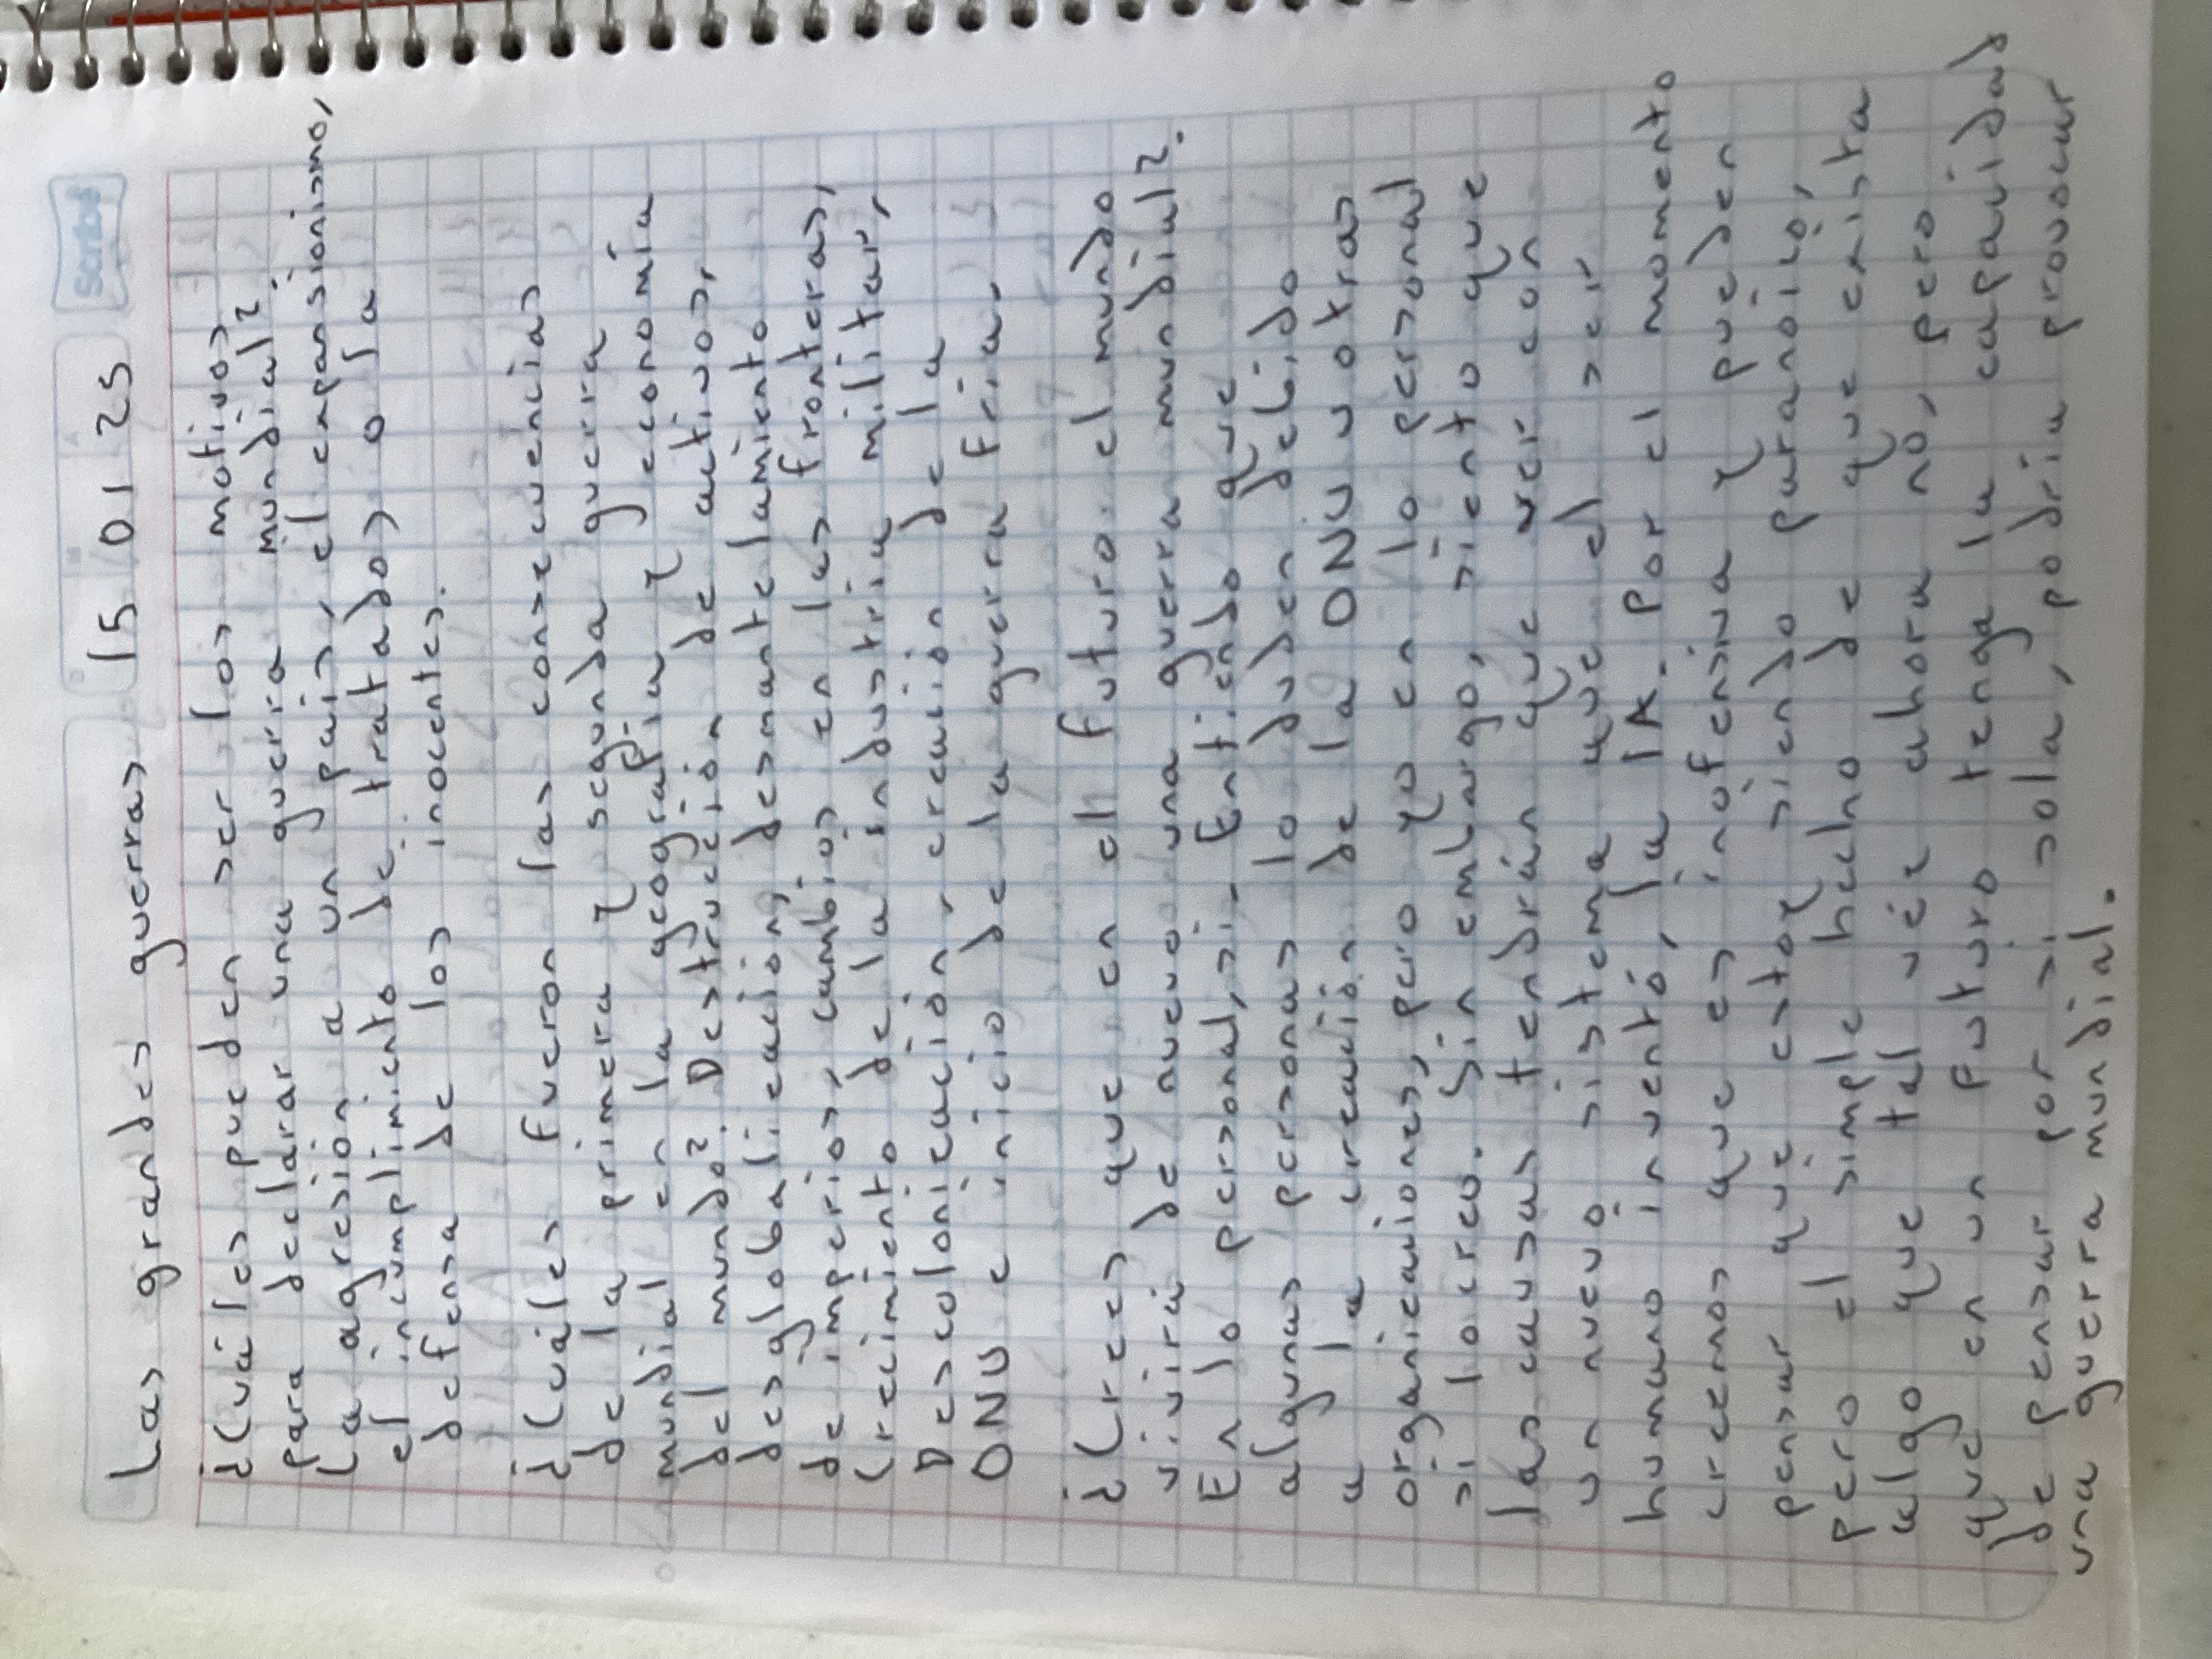 Scribe
Las grandes guerras 15 01 25
¿Cuáles pueden ser los motivos
para declarar una guerra mundial?.
La agresión a un país, el expansionismo,
el incumplimiento de tratados o la
defensa de los inocentes.
¿Cuáles fueron las consecuencias
de la primera y segunda guerra
mundial en la geograpía y economía
del mundo?. Destrucción de activos,
desglobalización, desmantelamiento
de imperios, cambios en las fronteras,
Crecimiento de la industria militar,
Descolonización, creación de la
ONU e inicio de la guerra fría.
¿Crees que en el futuro el mundo
vivirá de nuevo una guerra mundial?.
En lo personal, si. Entiendo que
algunas personas lo duden debido
a la creación de la ONU u otras
organizaciones, pero yo en lo personal
si lo creo. Sin embargo, siento que
las causas tendrán que ver con
un nuevo sistema que el ser
humano inventó, la IA. Por el momento
creemos que es inofensiva y pueden
pensar que estoy siendo paranoico,
pero el simple hecho de que exista
algo que tal véz ahora no, pero
que en un futuro tenga la capacidad
de pensar por si sola, podría provocar
una guerra mundial.